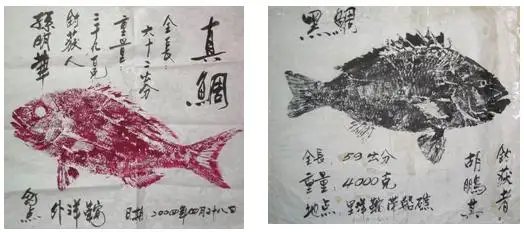 真鯛
全長:
六十二公分
重量:
三千九百克
釣获人
孫明華
釣点 外洋
日期 二00四年四月二十八日
黑鯛
全長. 59公分
重量. 4000克
地点. 船礁
釣获者
胡鵬